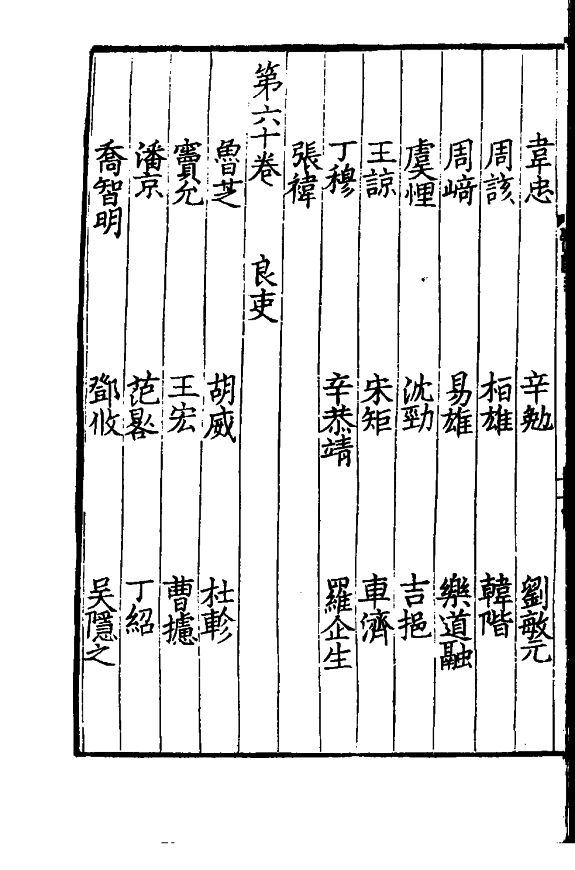 韋忠 辛勉 劉敏元
周該 栢雄 韓階
周﨑 易雄 樂道融
虞悝 沈勁 吉挹
王諒 宋矩 車濟
丁穆 辛恭靖 羅企生
張禕
第六十卷 良吏
魯芝 胡威 杜軫
竇允 王宏 曹攄
潘京 范晷 丁紹
喬智明 鄧攸 吳隱之